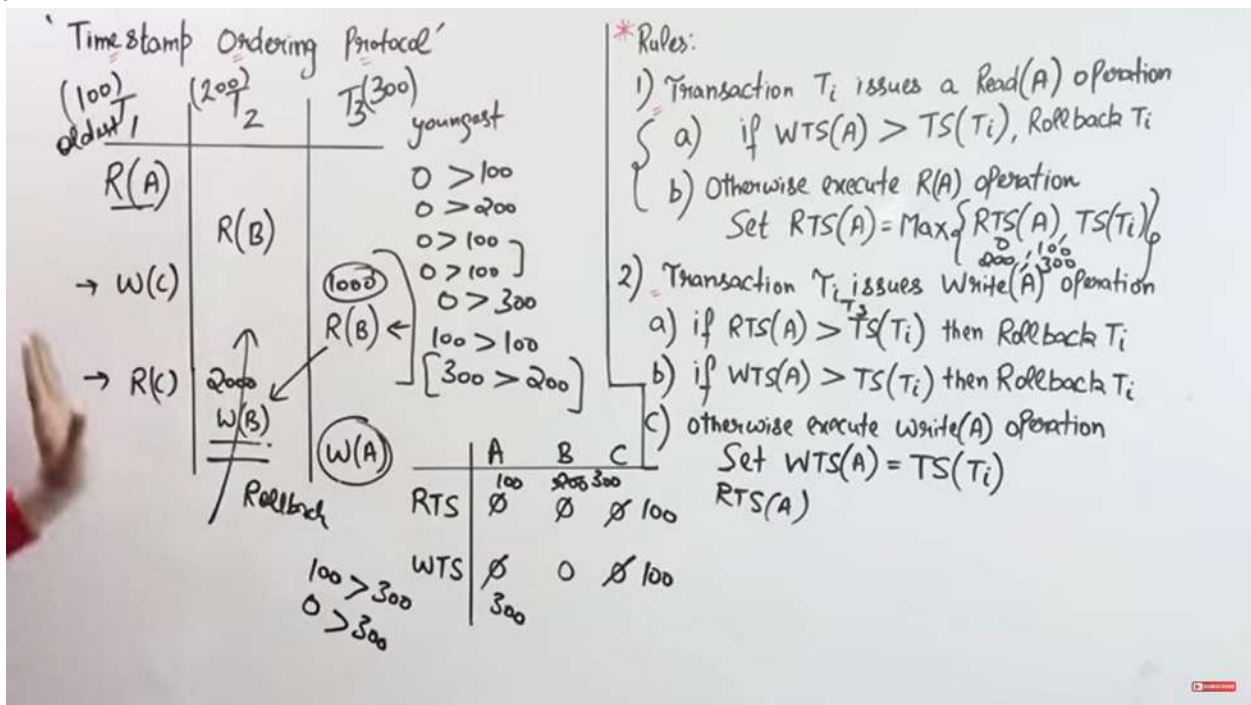 'Timestamp Ordering Protocol'
(100) T1 oldest
(200) T2
T3 (300)
youngest
R(A)
R(B)
→ W(C)
1000
R(B) ←
→ R(C)
2000
W(B)
Rollback
W(A)
0 > 100
0 > 200
0 > 100
0 > 100
0 > 300
100 > 100
[300 > 200]
A B C
100 200 300
RTS 0 0 0 100
WTS 0 0 0 100
300
100 > 300
0 > 300
* Rules:
1) Transaction Ti issues a Read(A) operation
a) if WTS(A) > TS(Ti), Rollback Ti
b) Otherwise execute R(A) operation
Set RTS(A) = Max{RTS(A), TS(Ti)}
0, 100
200, 300
2) Transaction Ti issues Write(A) operation
T3
a) if RTS(A) > TS(Ti) then Rollback Ti
b) if WTS(A) > TS(Ti) then Rollback Ti
c) otherwise execute write(A) operation
Set WTS(A) = TS(Ti)
RTS(A)
SUBSCRIBE